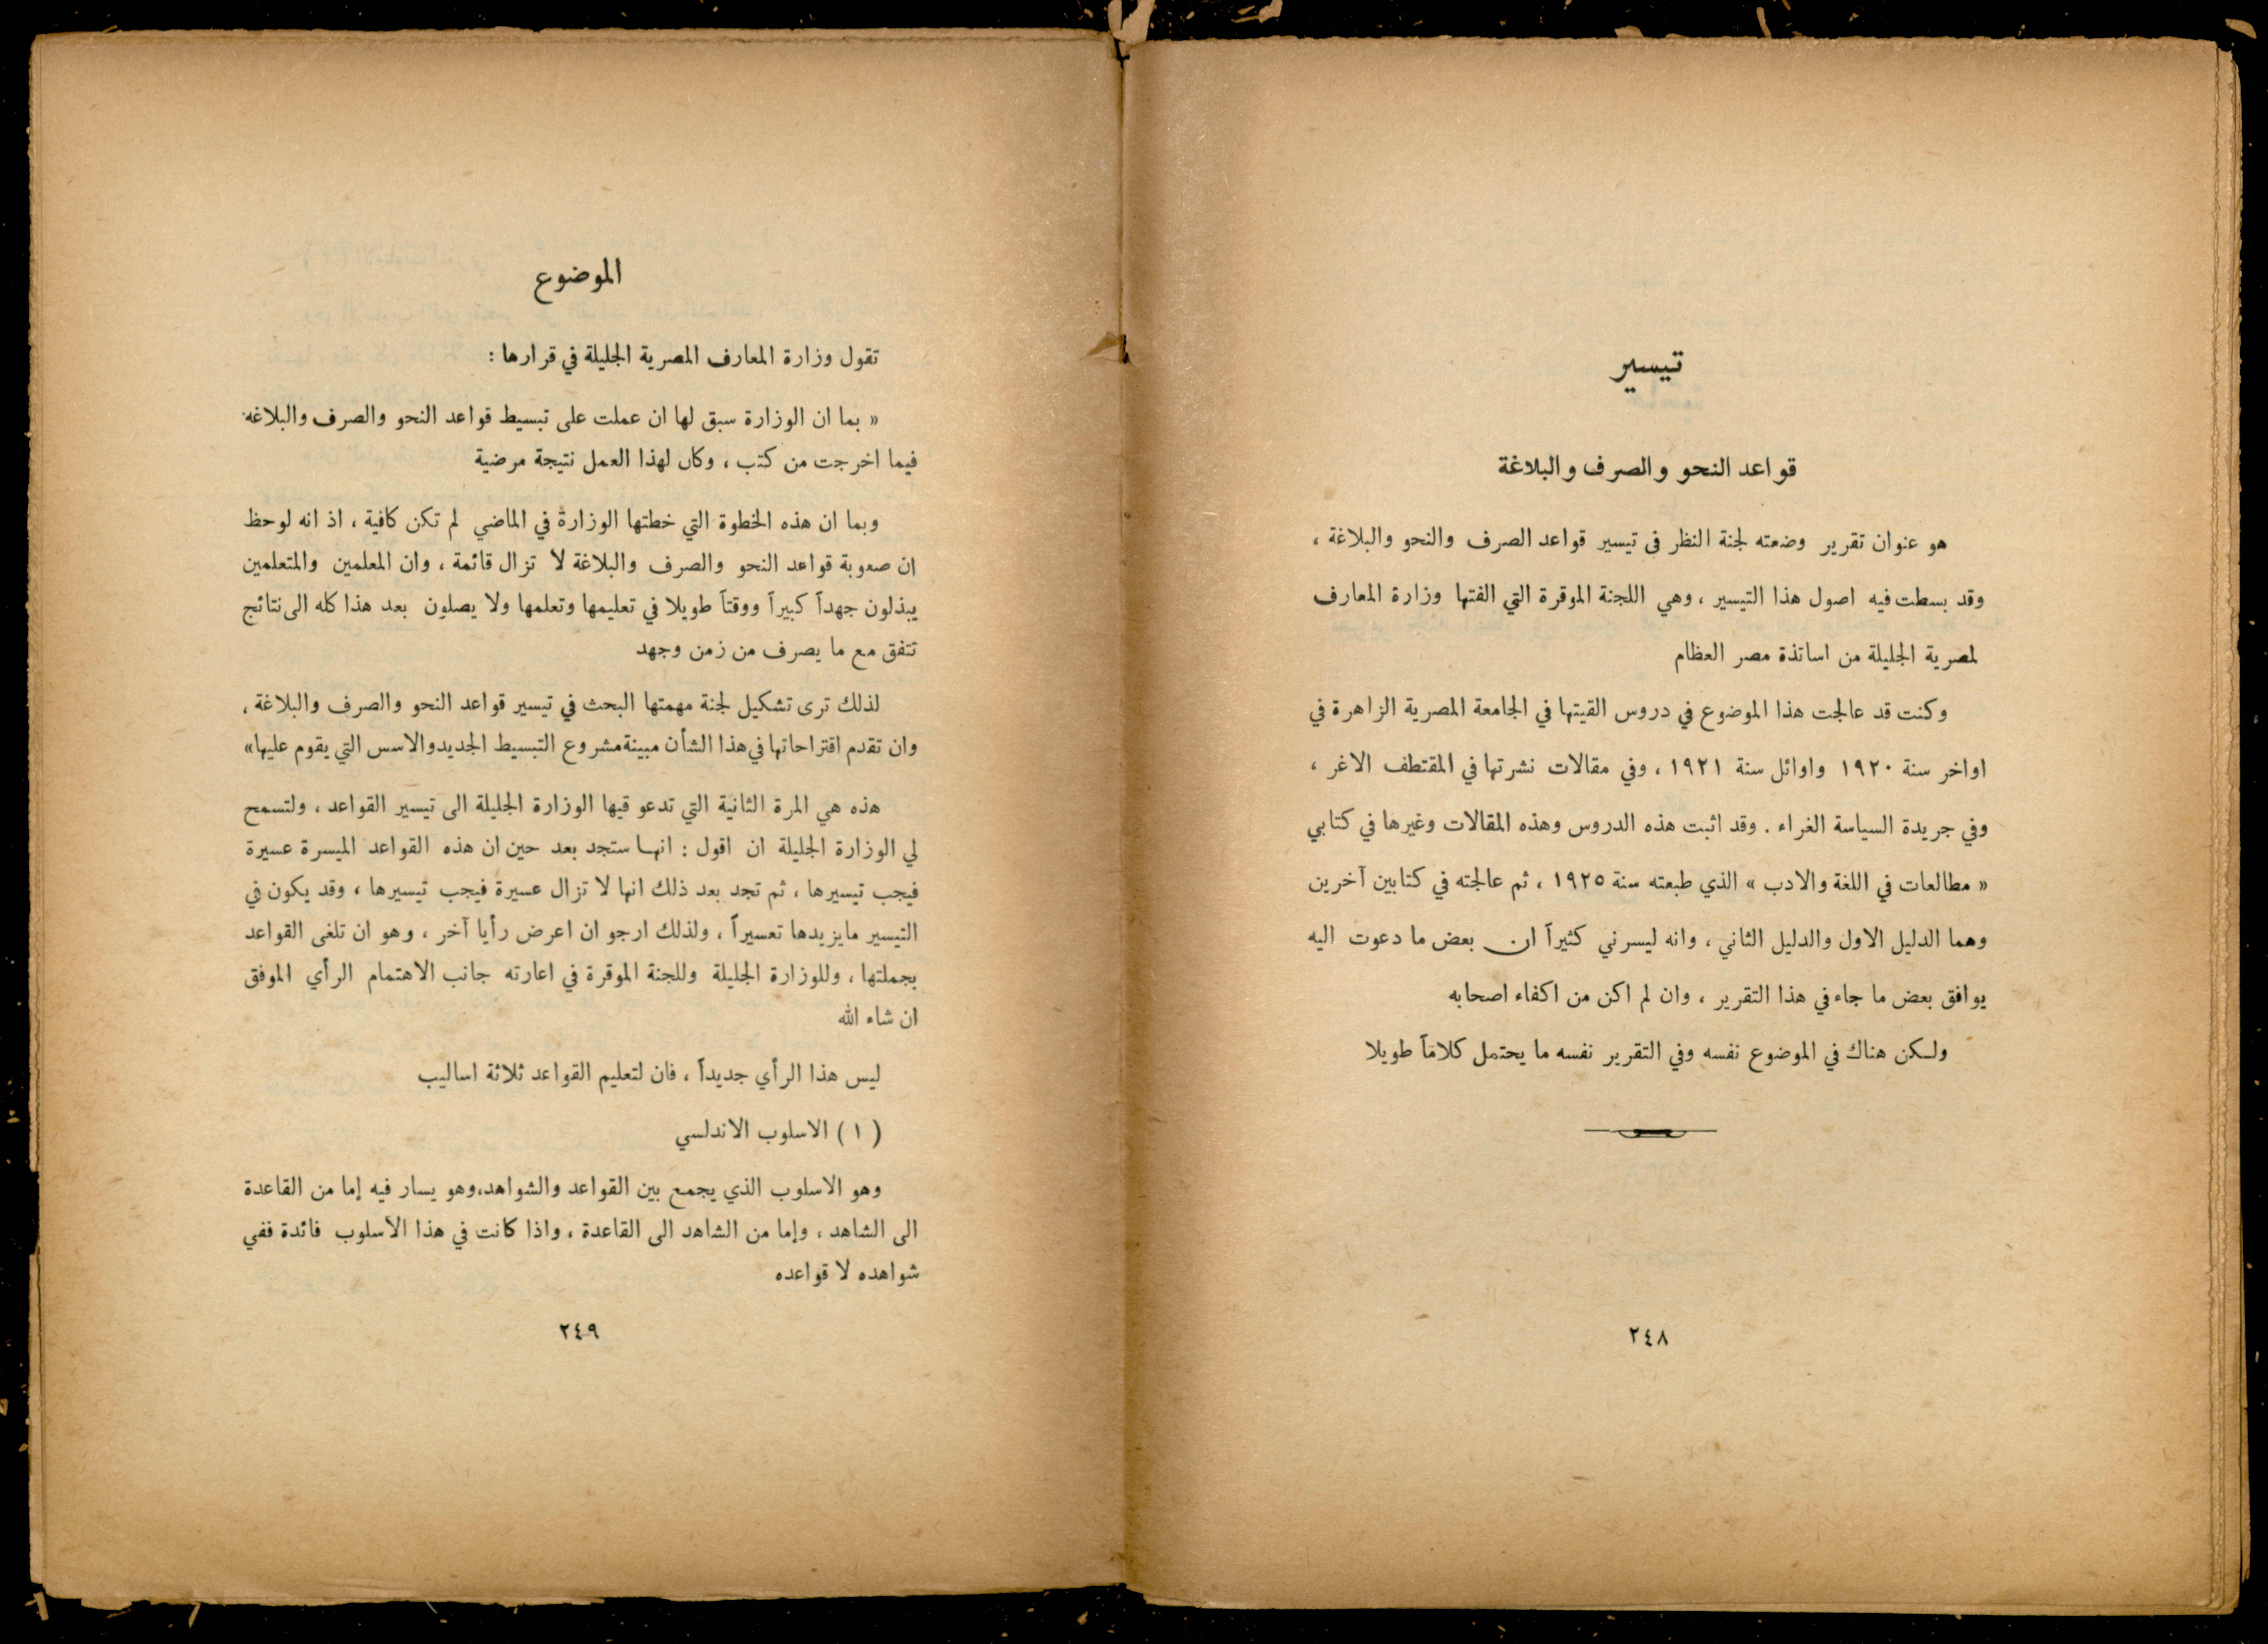 تيسير
قواعد النحو والصرف والبلاغة
هو عنوان تقرير وضعته لجنة النظر فى تيسير قواعد الصرف والنحو والبلاغة ،
وقد بسطت فيه اصول هذا التيسير ، وهي اللجنة الموقرة التي الفتها وزارة المعارف
لمصرية الجليلة من اساتذة مصر العظام
وكنت قد عالجت هذا الموضوع في دروس القيتها في الجامعة المصرية الزاهرة في
اواخر سنة ١٩٢٠ واوائل سنة ١٩٢١ ، وفي مقالات نشرتها في المقتطف الاغر ،
وفي جريدة السياسة الغراء . وقد اثبت هذه الدروس وهذه المقالات وغيرها في كتابي
« مطالعات في اللغة والادب » الذي طبعته سنة ١٩٢٥ ، ثم عالجته في كتابين آخرين
وهما الدليل الاول والدليل الثاني ، وانه ليسرني كثيراً ان بعض ما دعوت اليه
يوافق بعض ما جاء في هذا التقرير ، وان لم اكن من اكفاء اصحابه
ولكن هناك في الموضوع نفسه وفي التقرير نفسه ما يحتمل كلاماً طويلا
٢٤٨
الموضوع
تقول وزارة المعارف المصرية الجليلة في قرارها :
« بما ان الوزارة سبق لها ان عملت على تبسيط قواعد النحو والصرف والبلاغه
فيما اخرجت من كتب ، وكان لهذا العمل نتيجة مرضية
وبما ان هذه الخطوة التي خطتها الوزارة في الماضي لم تكن كافية ، اذ انه لوحظ
ان صعوبة قواعد النحو والصرف والبلاغة لا تزال قائمة ، وان المعلمين والمتعلمين
يبذلون جهداً كبيراً ووقتاً طويلا في تعليمها وتعلمها ولا يصلون بعد هذا كله الى نتائج
تتفق مع ما يصرف من زمن وجهد
لذلك ترى تشكيل لجنة مهمتها البحث في تيسير قواعد النحو والصرف والبلاغة ،
وان تقدم اقتراحاتها في هذا الشأن مبينة مشروع التبسيط الجديد والاسس التي يقوم عليها»
هذه هي المرة الثانية التي تدعو فيها الوزارة الجليلة الى تيسير القواعد ، ولتسمح
لي الوزارة الجليلة ان اقول : انها ستجد بعد حين ان هذه القواعد الميسرة عسيرة
فيجب تيسيرها ، ثم تجد بعد ذلك انها لا تزال عسيرة فيجب تيسيرها ، وقد يكون في
التيسير مايزيدها تعسيراً ، ولذلك ارجو ان اعرض رأيا آخر ، وهو ان تلغى القواعد
بجملتها ، وللوزارة الجليلة وللجنة الموقرة في اعارته جانب الاهتمام الرأي الموفق
ان شاء الله
ليس هذا الرأي جديداً ، فان لتعليم القواعد ثلاثة اساليب
( ١ ) الاسلوب الاندلسي
وهو الاسلوب الذي يجمع بين القواعد والشواهد،وهو يسار فيه إما من القاعدة
الى الشاهد ، وإما من الشاهد الى القاعدة ، واذا كانت في هذا الأسلوب فائدة ففي
شواهده لا قواعده
٢٤٩